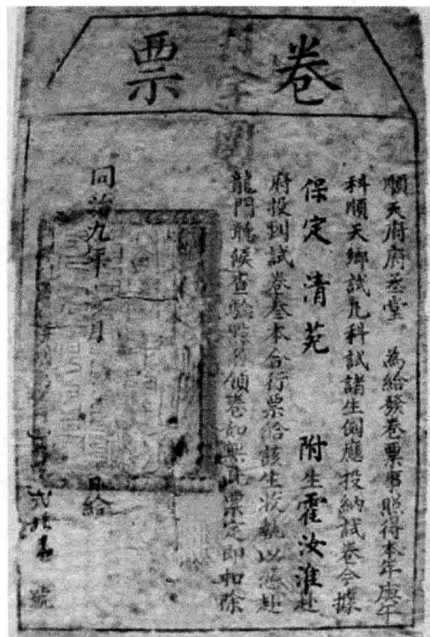 卷票
順天府府丞堂 為給發卷票事照得本年庚午
科順天鄉試凡科試諸生例應投納試卷今據
保定 清苑 附生霍汝淮赴
府投到試卷叁本合行票給該生收執以憑赴
龍門聽候查驗 領卷如無此票定即扣除
同治九年 月 日給
號